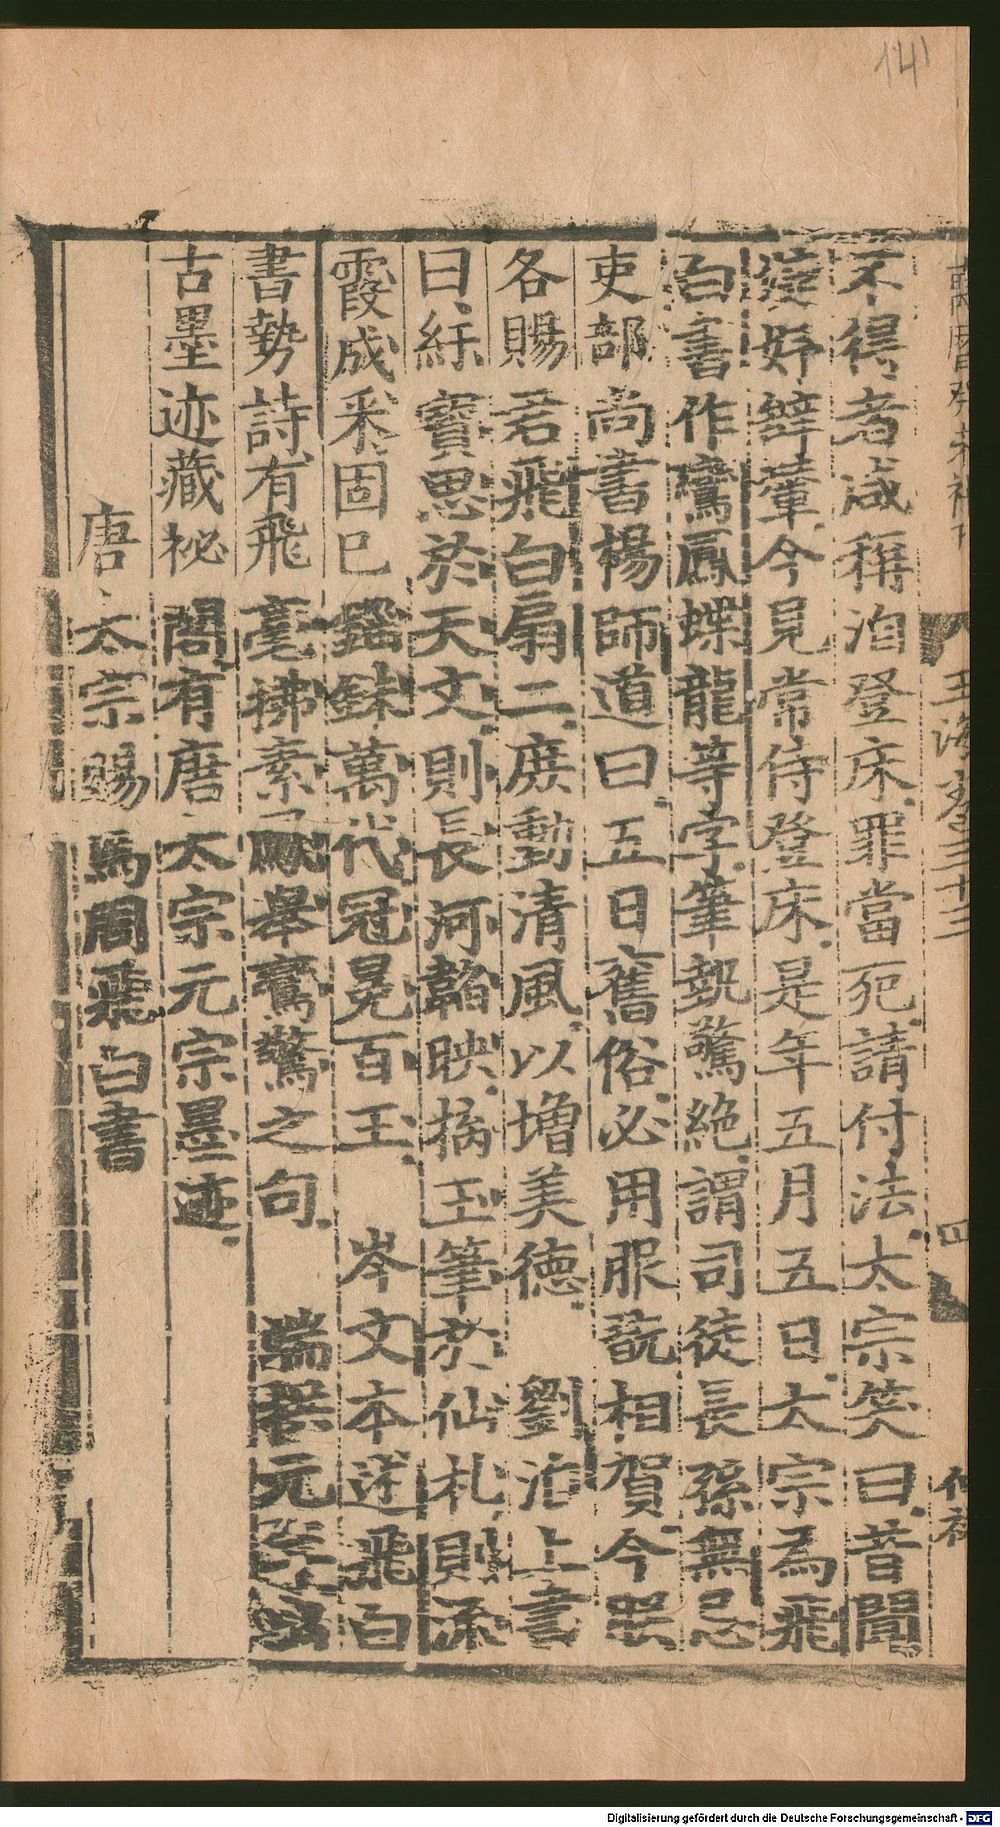 141
萬曆癸未補刊
玉海卷三十三
四
不得者咸稱洎登床罪當死請付法太宗笑曰昔聞
婕妤辝輦今見常侍登床是年五月五日太宗為飛
白書作鸞鳳蝶龍等字筆勢驚絶謂司徒長孫無忌
吏部尚書楊師道曰五日舊俗必用服翫相賀今朕
各賜君飛白扇二庻動清風以增美德 劉洎上書
曰紆寶思於天文則長河韜映摛玉筆於仙札則流
霞成釆固已錙銖萬代冠冕百王 岑文本述飛白
書勢詩有飛毫拂素 舉鸞驚之句 端拱元年
古墨迹藏祕閣有唐太宗元宗墨迹
唐太宗賜馬周飛白書
Digitalisierung gefördert durch die Deutsche Forschungsgemeinschaft - DFG